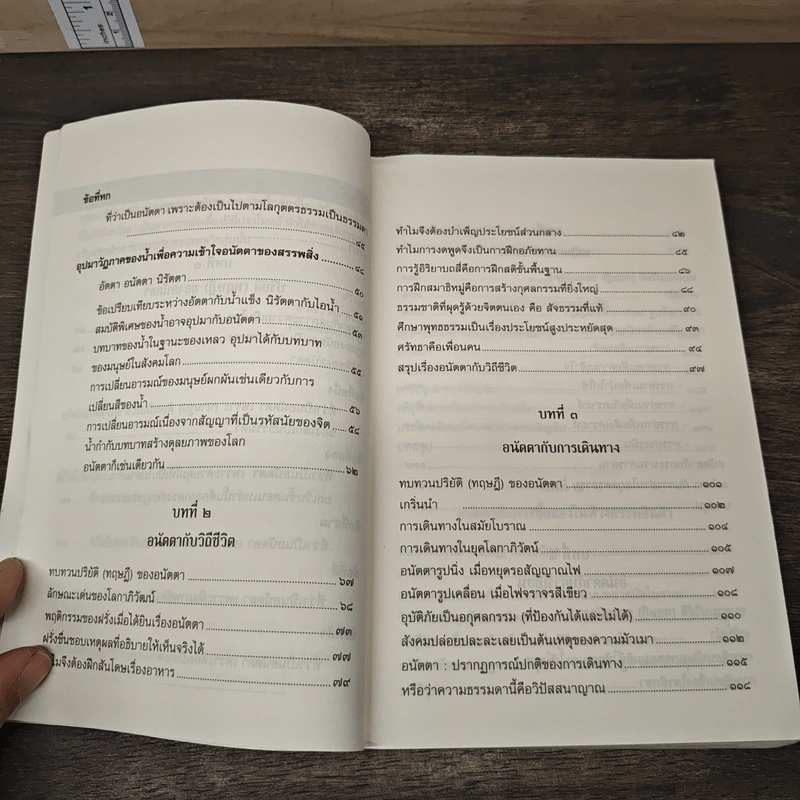 inches
1
2
ข้อที่หก
ที่ว่าเป็นอนัตตา เพราะต้องเป็นไปตามโลกุตตรธรรมเป็นธรรมดา
........................................ ๔๕
อุปมาวัฏภาคของน้ำเพื่อความเข้าใจอนัตตาของสรรพสิ่ง .......... ๔๘
อัตตา อนัตตา นิรัตตา ........................................ ๕๐
ข้อเปรียบเทียบระหว่างอัตตากับน้ำแข็ง นิรัตตากับไอน้ำ ..... ๕๑
สมบัติพิเศษของน้ำอาจอุปมากับอนัตตา .......................... ๕๓
บทบาทของน้ำในฐานะของเหลว อุปมาได้กับบทบาท
ของมนุษย์ในสังคมโลก ........................................ ๕๕
การเปลี่ยนอารมณ์ของมนุษย์ผกผันเช่นเดียวกับการ
เปลี่ยนสีของน้ำ ........................................ ๕๖
การเปลี่ยนอารมณ์เนื่องจากสัญญาที่เป็นรหัสนัยของจิต ..... ๕๘
น้ำกำกับบทบาทสร้างดุลยภาพของโลก
อนัตตาก็เช่นเดียวกัน ........................................ ๖๒
บทที่ ๒
อนัตตากับวิถีชีวิต
ทบทวนปริยัติ (ทฤษฎี) ของอนัตตา ........................................ ๖๗
ลักษณะเด่นของโลกาภิวัตน์ ........................................ ๖๘
พฤติกรรมของฝรั่งเมื่อได้ยินเรื่องอนัตตา .......................... ๗๓
ฝรั่งชื่นชอบเหตุผลที่อธิบายให้เห็นจริงได้ .......................... ๗๗
ไมจึงต้องฝึกสันโดษเรื่องอาหาร .......................... ๗๙
ทำไมจึงต้องบำเพ็ญประโยชน์ส่วนกลาง .......................... ๘๒
ทำไมการงดพูดจึงเป็นการฝึกอภัยทาน .......................... ๘๕
การรู้อิริยาบถสี่คือการฝึกสติขั้นพื้นฐาน .......................... ๘๖
การฝึกสมาธิหมู่คือการสร้างกุศลกรรมที่ยิ่งใหญ่ .......................... ๘๘
ธรรมชาติที่ผุดรู้ด้วยจิตตนเอง คือ สัจธรรมที่แท้ .......................... ๙๐
ศึกษาพุทธธรรมเป็นเรื่องประโยชน์สูงประหยัดสุด .......................... ๙๓
ศรัทธาคือเพื่อนคน ........................................ ๙๔
สรุปเรื่องอนัตตากับวิถีชีวิต ........................................ ๙๗
บทที่ ๓
อนัตตากับการเดินทาง
ทบทวนปริยัติ (ทฤษฎี) ของอนัตตา .......................... ๑๐๑
เกริ่นนำ ........................................ ๑๐๒
การเดินทางในสมัยโบราณ .......................... ๑๐๔
การเดินทางในยุคโลกาภิวัตน์ .......................... ๑๐๕
อนัตตารูปนิ่ง เมื่อหยุดรอสัญญาณไฟ .......................... ๑๐๗
อนัตตารูปเคลื่อน เมื่อไฟจราจรสีเขียว .......................... ๑๐๘
อุบัติภัยเป็นอกุศลกรรม (ที่ป้องกันได้และไม่ได้) .......................... ๑๑๐
สังคมปล่อยปละละเลยเป็นต้นเหตุของความมัวเมา .......................... ๑๑๒
อนัตตา : ปรากฏการณ์ปกติของการเดินทาง .......................... ๑๑๕
หรือว่าความธรรมดานี้คือวิปัสสนาญาณ .......................... ๑๑๘